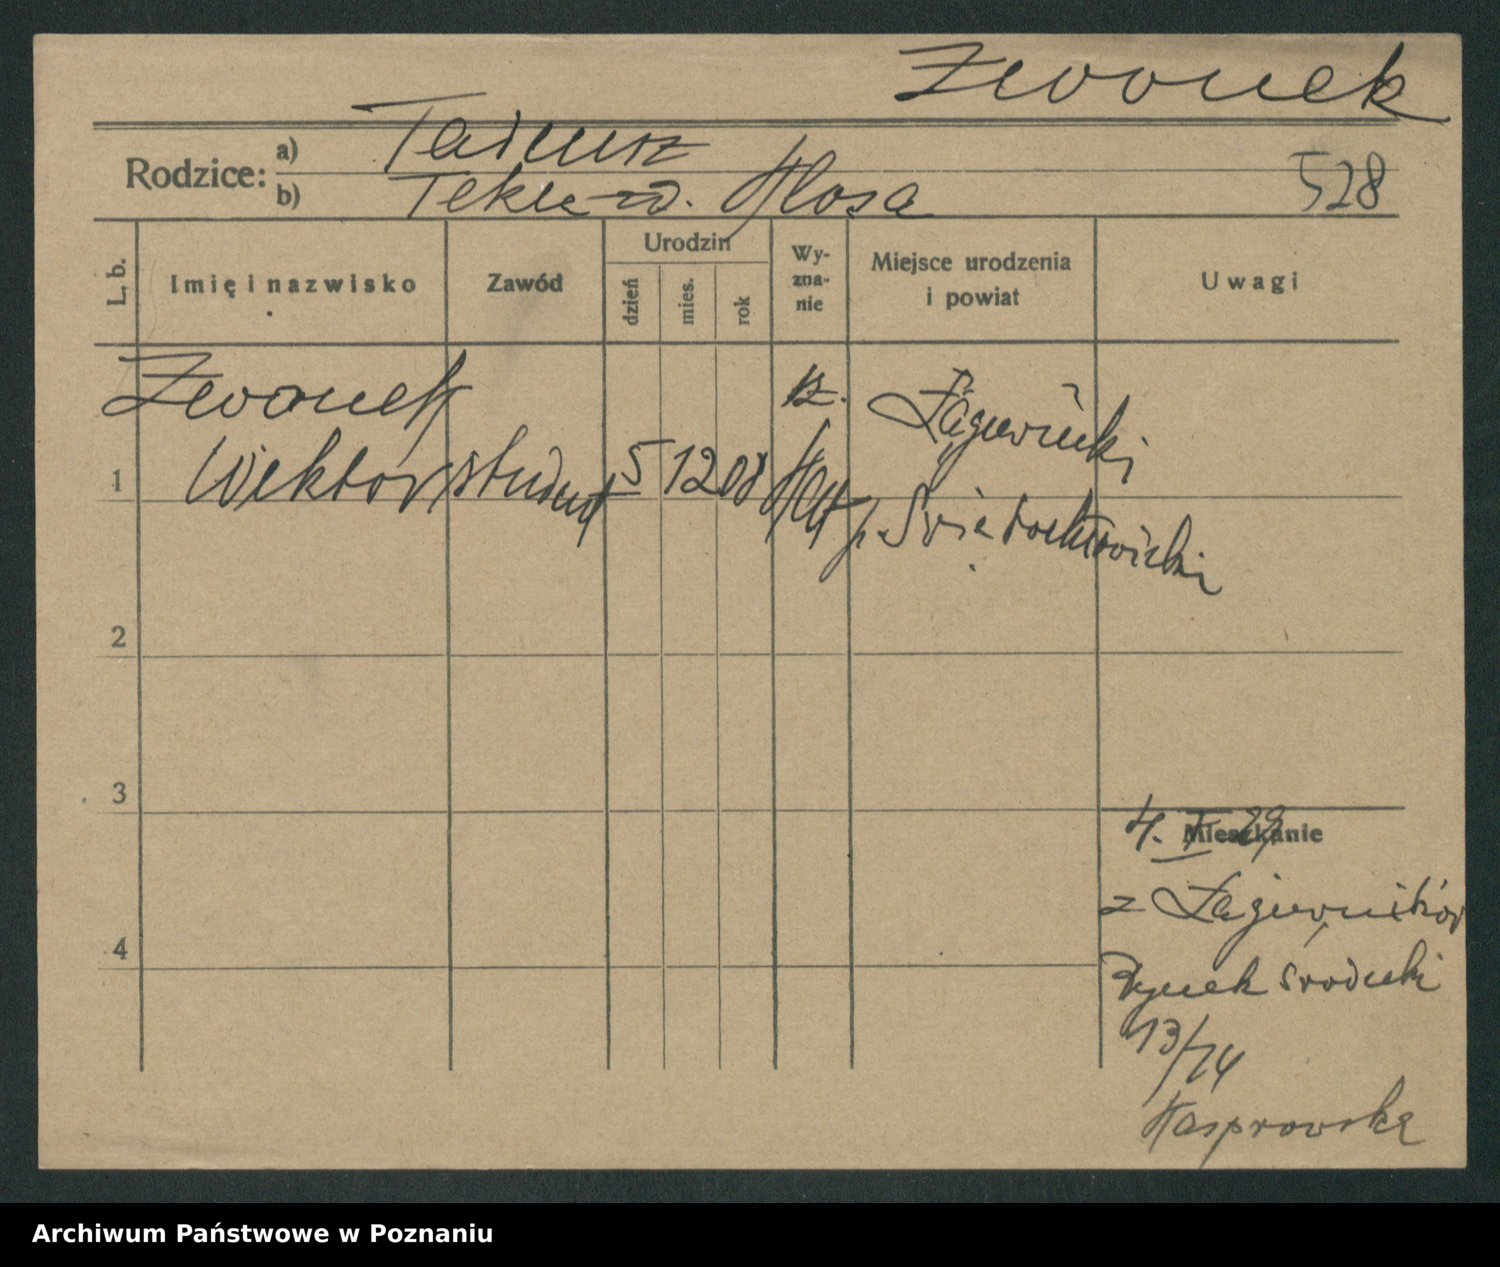 Zwonek
Rodzice: a) Tadeusz
b) Tekla zd. Kłosa
528
L. b.
Imię i nazwisko
Zawód
Urodzin
dzień
mies.
rok
Wy-
zna-
nie
Miejsce urodzenia
i powiat
Uwagi
Zwonek
Wiktor
student
5 12 08
rz.
Kat
Łagiewniki
p. Świętochłowicki
1
2
3
4
Mieszkanie
4. X 29
z Łagiewników
Rynek Śródecki
13/14
Kasprowska
Archiwum Państwowe w Poznaniu